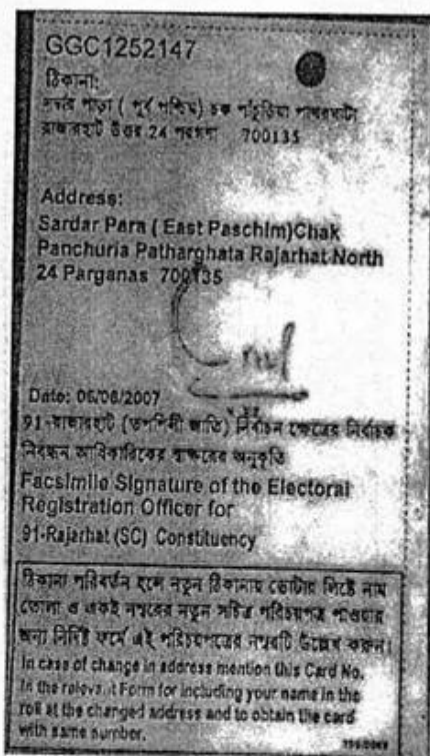 GGC1252147
ঠিকানা:
সর্দার পাড়া ( পূর্ব পশ্চিম) চক পাঁচুড়িয়া পাথরঘাটা
রাজারহাট উত্তর 24 পরগণা 700135
Address:
Sardar Para ( East Paschim)Chak
Panchuria Patharghata Rajarhat North
24 Parganas 700135
Date: 06/08/2007
91-রাজারহাট (তপশিলী জাতি) নির্বাচন ক্ষেত্রের নির্বাচক
নিবন্ধন আধিকারিকের স্বাক্ষরের অনুকৃতি
Facsimile Signature of the Electoral
Registration Officer for
91-Rajarhat (SC) Constituency
ঠিকানা পরিবর্তন হলে নতুন ঠিকানায় ভোটার লিষ্টে নাম
তোলা ও একই নম্বরের নতুন সচিত্র পরিচয়পত্র পাওয়ার
জন্য নির্দিষ্ট ফর্মে এই পরিচয়পত্রের নম্বরটি উল্লেখ করুন।
In case of change in address mention this Card No.
in the relevant Form for including your name in the
roll at the changed address and to obtain the card
with same number.